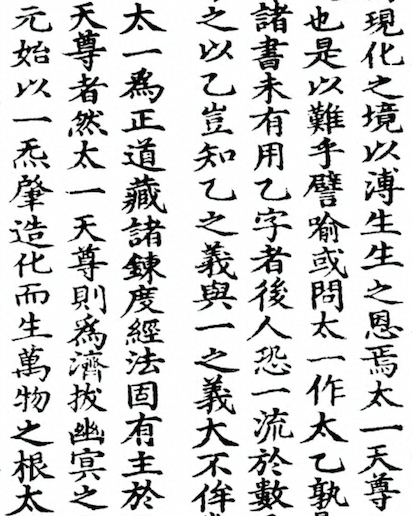 現化之境以溥生生之恩焉太一天尊
也是以難乎譬喻或問太一作太乙孰
諸書未有用乙字者後人恐一流於數
之以乙豈知乙之義與一之義大不侔
太一爲正道藏諸鍊度經法固有主於
天尊者然太一天尊則爲濟拔幽冥之
元始以一炁肇造化而生萬物之根太